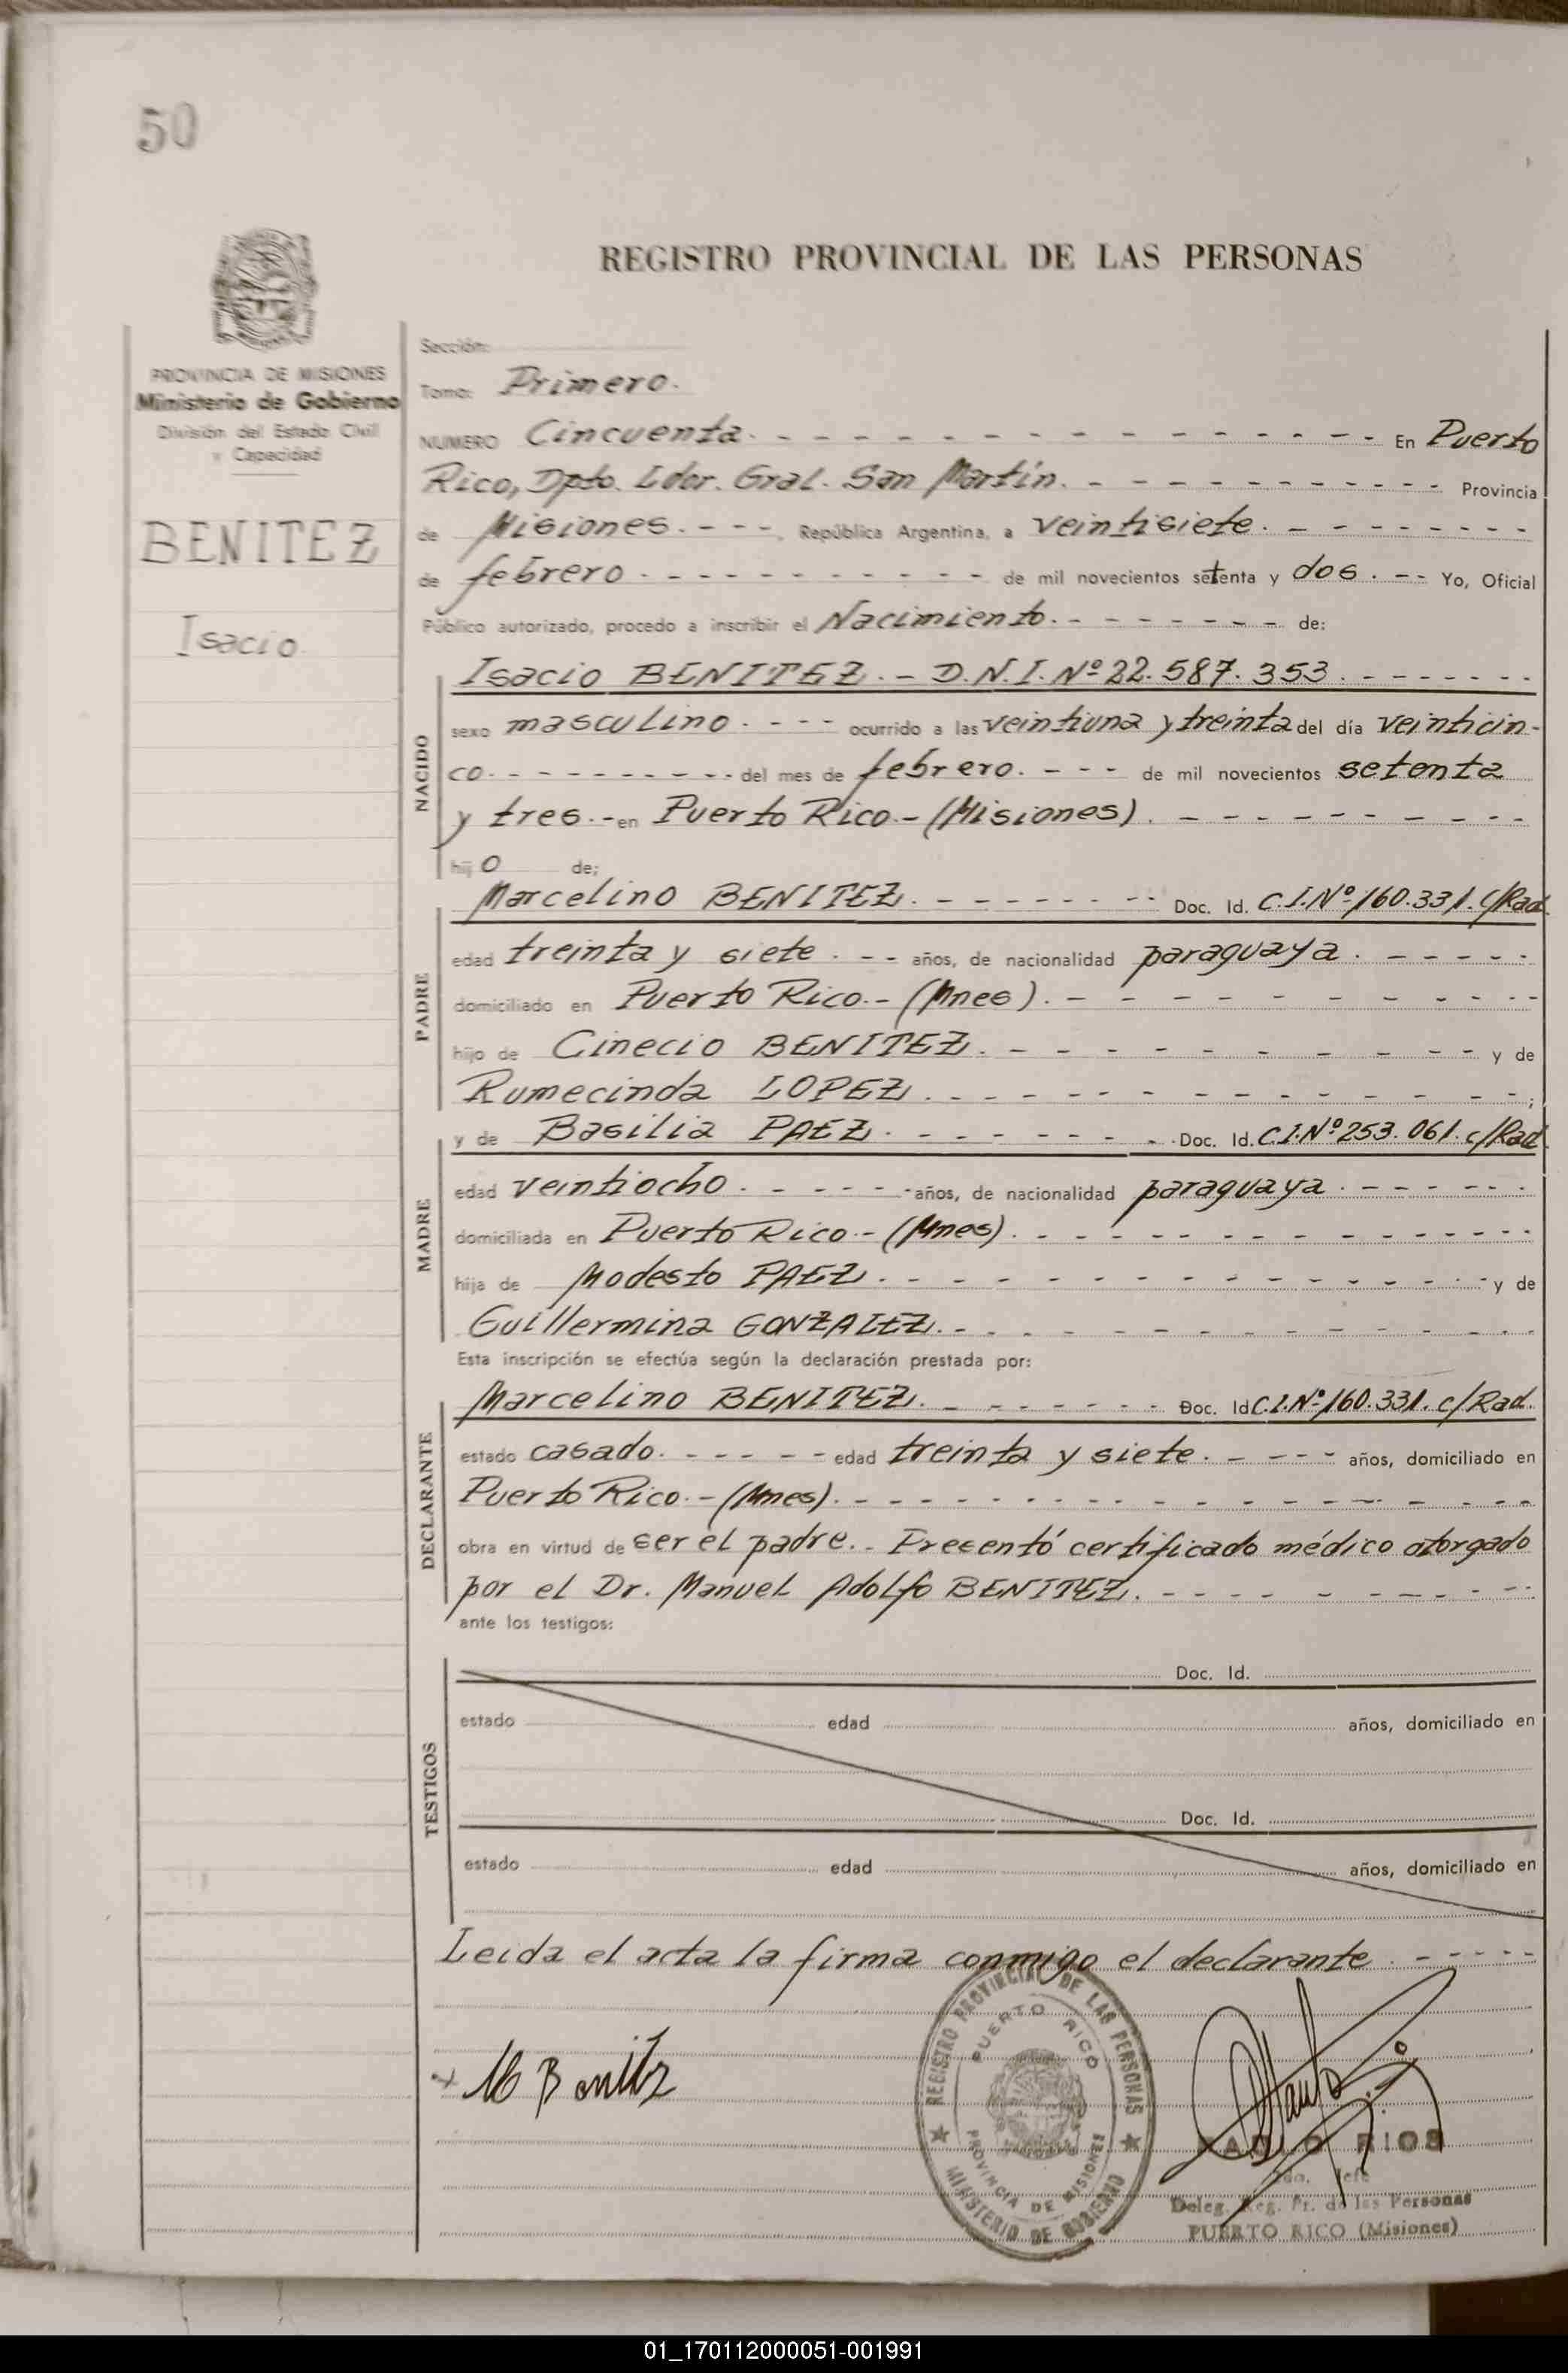 50
REGISTRO PROVINCIAL DE LAS PERSONAS
PROVINCIA DE MISIONES
Ministerio de Gobierno
División del Estado Civil
y Capacidad
BENITEZ
Isacio.
Sección:
Tomo: Primero.
NUMERO Cincuenta. En Puerto
Rico, Dpto. Ldor. Gral. San Martín. Provincia
de Misiones. República Argentina, a veintisiete.
de febrero. de mil novecientos setenta y dos. Yo, Oficial
Público autorizado, procedo a inscribir el Nacimiento. de:
NACIDO
Isacio BENITEZ. - D.N.I. Nº 22.587.353.
sexo masculino. ocurrido a las veintiuna y treinta del día veinticin-
co. del mes de febrero. de mil novecientos setenta
y tres. - en Puerto Rico. - (Misiones).
hijo de;
PADRE
Marcelino BENITEZ. Doc. Id. C.I. Nº 160.331. c/Rad.
edad treinta y siete. años, de nacionalidad paraguaya.
domiciliado en Puerto Rico. - (Mnes).
hijo de Cinecio BENITEZ. y de
Rumecinda LOPEZ. ;
MADRE
y de Basilia PAEZ. Doc. Id. C.I. Nº 253.061. c/Rad.
edad veintiocho. años, de nacionalidad paraguaya.
domiciliada en Puerto Rico. - (Mnes).
hija de Modesto PAEZ. y de
Guillermina GONZALEZ.
Esta inscripción se efectúa según la declaración prestada por:
DECLARANTE
Marcelino BENITEZ. Doc. Id C.I. Nº 160.331. c/Rad.
estado casado. edad treinta y siete. años, domiciliado en
Puerto Rico. - (Mnes).
obra en virtud de ser el padre. - Presentó certificado médico otorgado
por el Dr. Manuel Adolfo BENITEZ.
ante los testigos:
TESTIGOS
Doc. Id.
estado edad años, domiciliado en
Doc. Id.
estado edad años, domiciliado en
Leida el acta la firma conmigo el declarante.
M Benitez
REGISTRO PROVINCIAL DE LAS PERSONAS
PUERTO RICO
PROVINCIA DE MISIONES
MINISTERIO DE GOBIERNO
RIOS
2do. Jefe
Deleg. Reg. Pr. de las Personas
PUERTO RICO (Misiones)
01_170112000051-001991